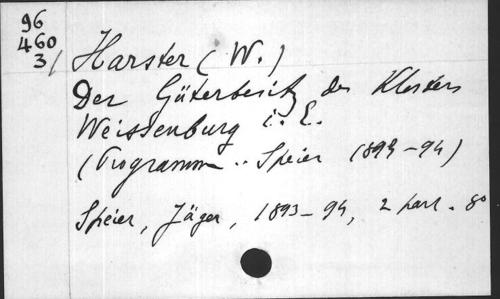 96
460
3/
Harster (W.)
Der Güterbesitz des Klosters
Weissenburg i. E.
(Programm .. Speier 1894-94)
Speier, Jäger, 1893-94, 2 part. 8°